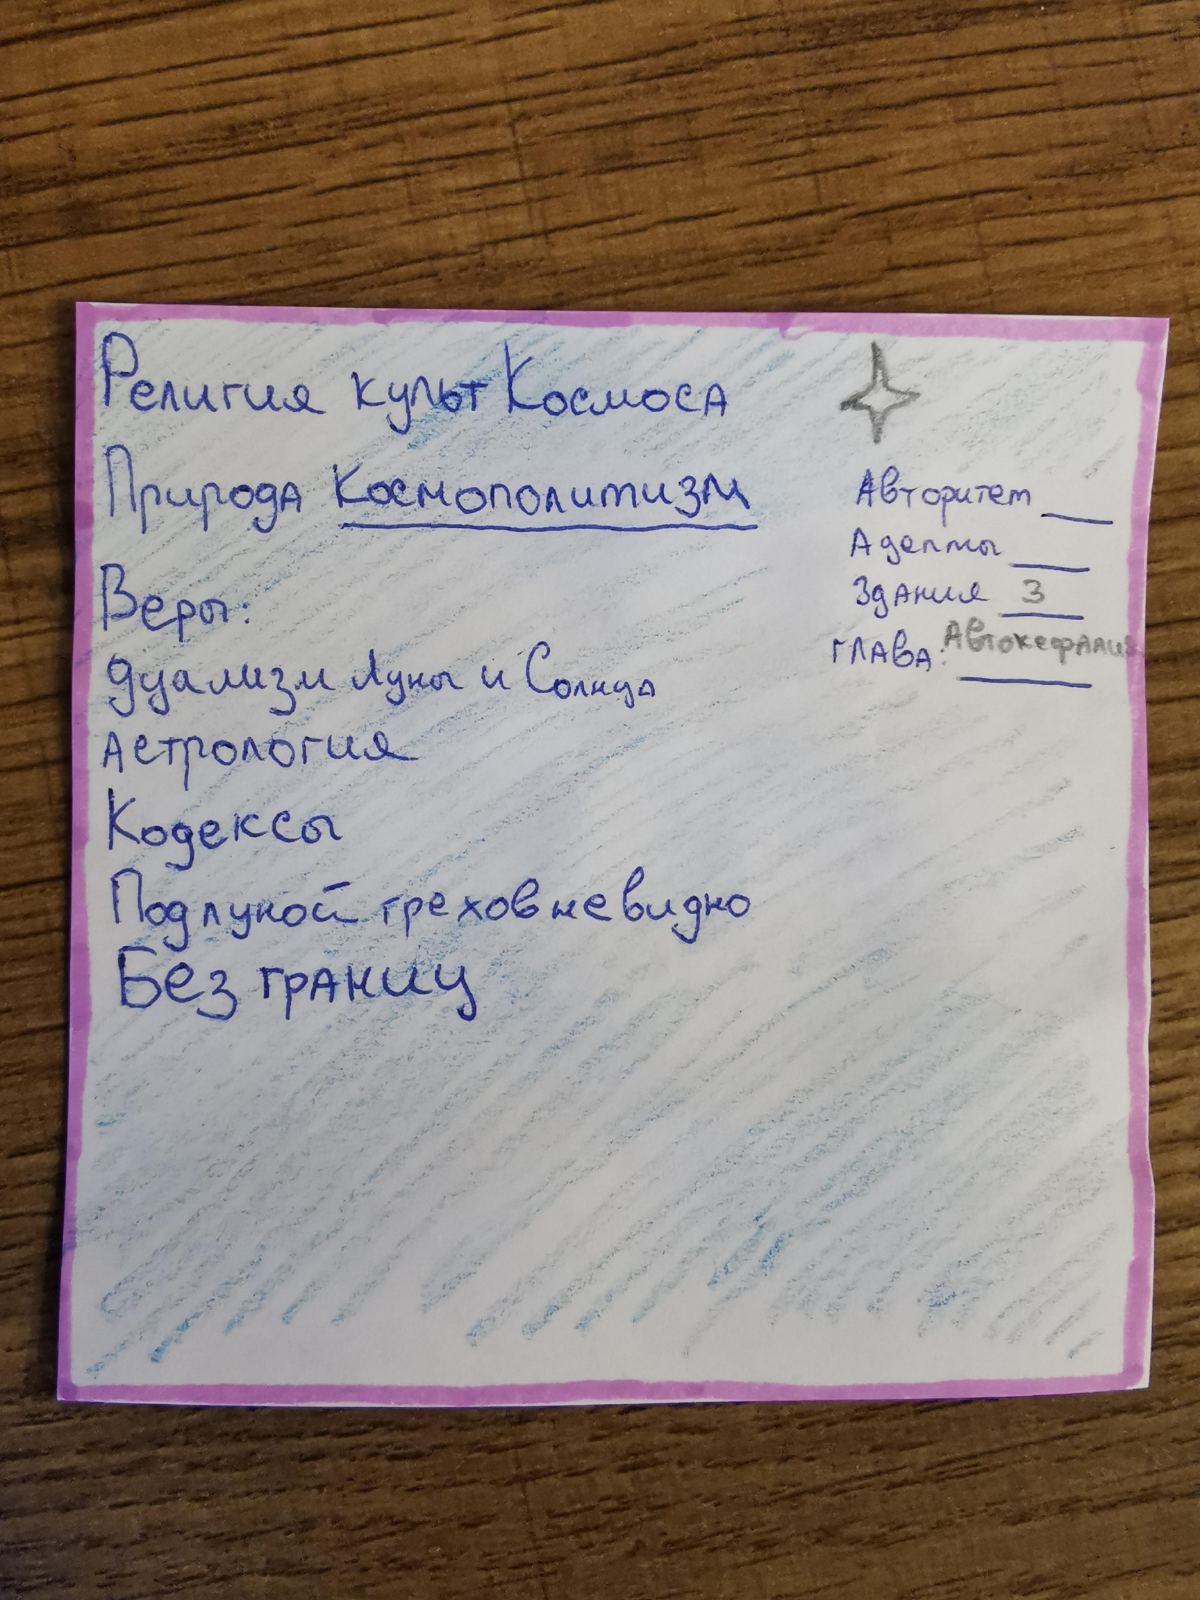 Религия культ Космоса
Природа Космополитизм
Веры:
дуализм Луны и Солнца
Астрология
Кодексы
Под луной грехов не видно
Без границ
Авторитет
Адепты
Здания 3
глава: Автокефалия